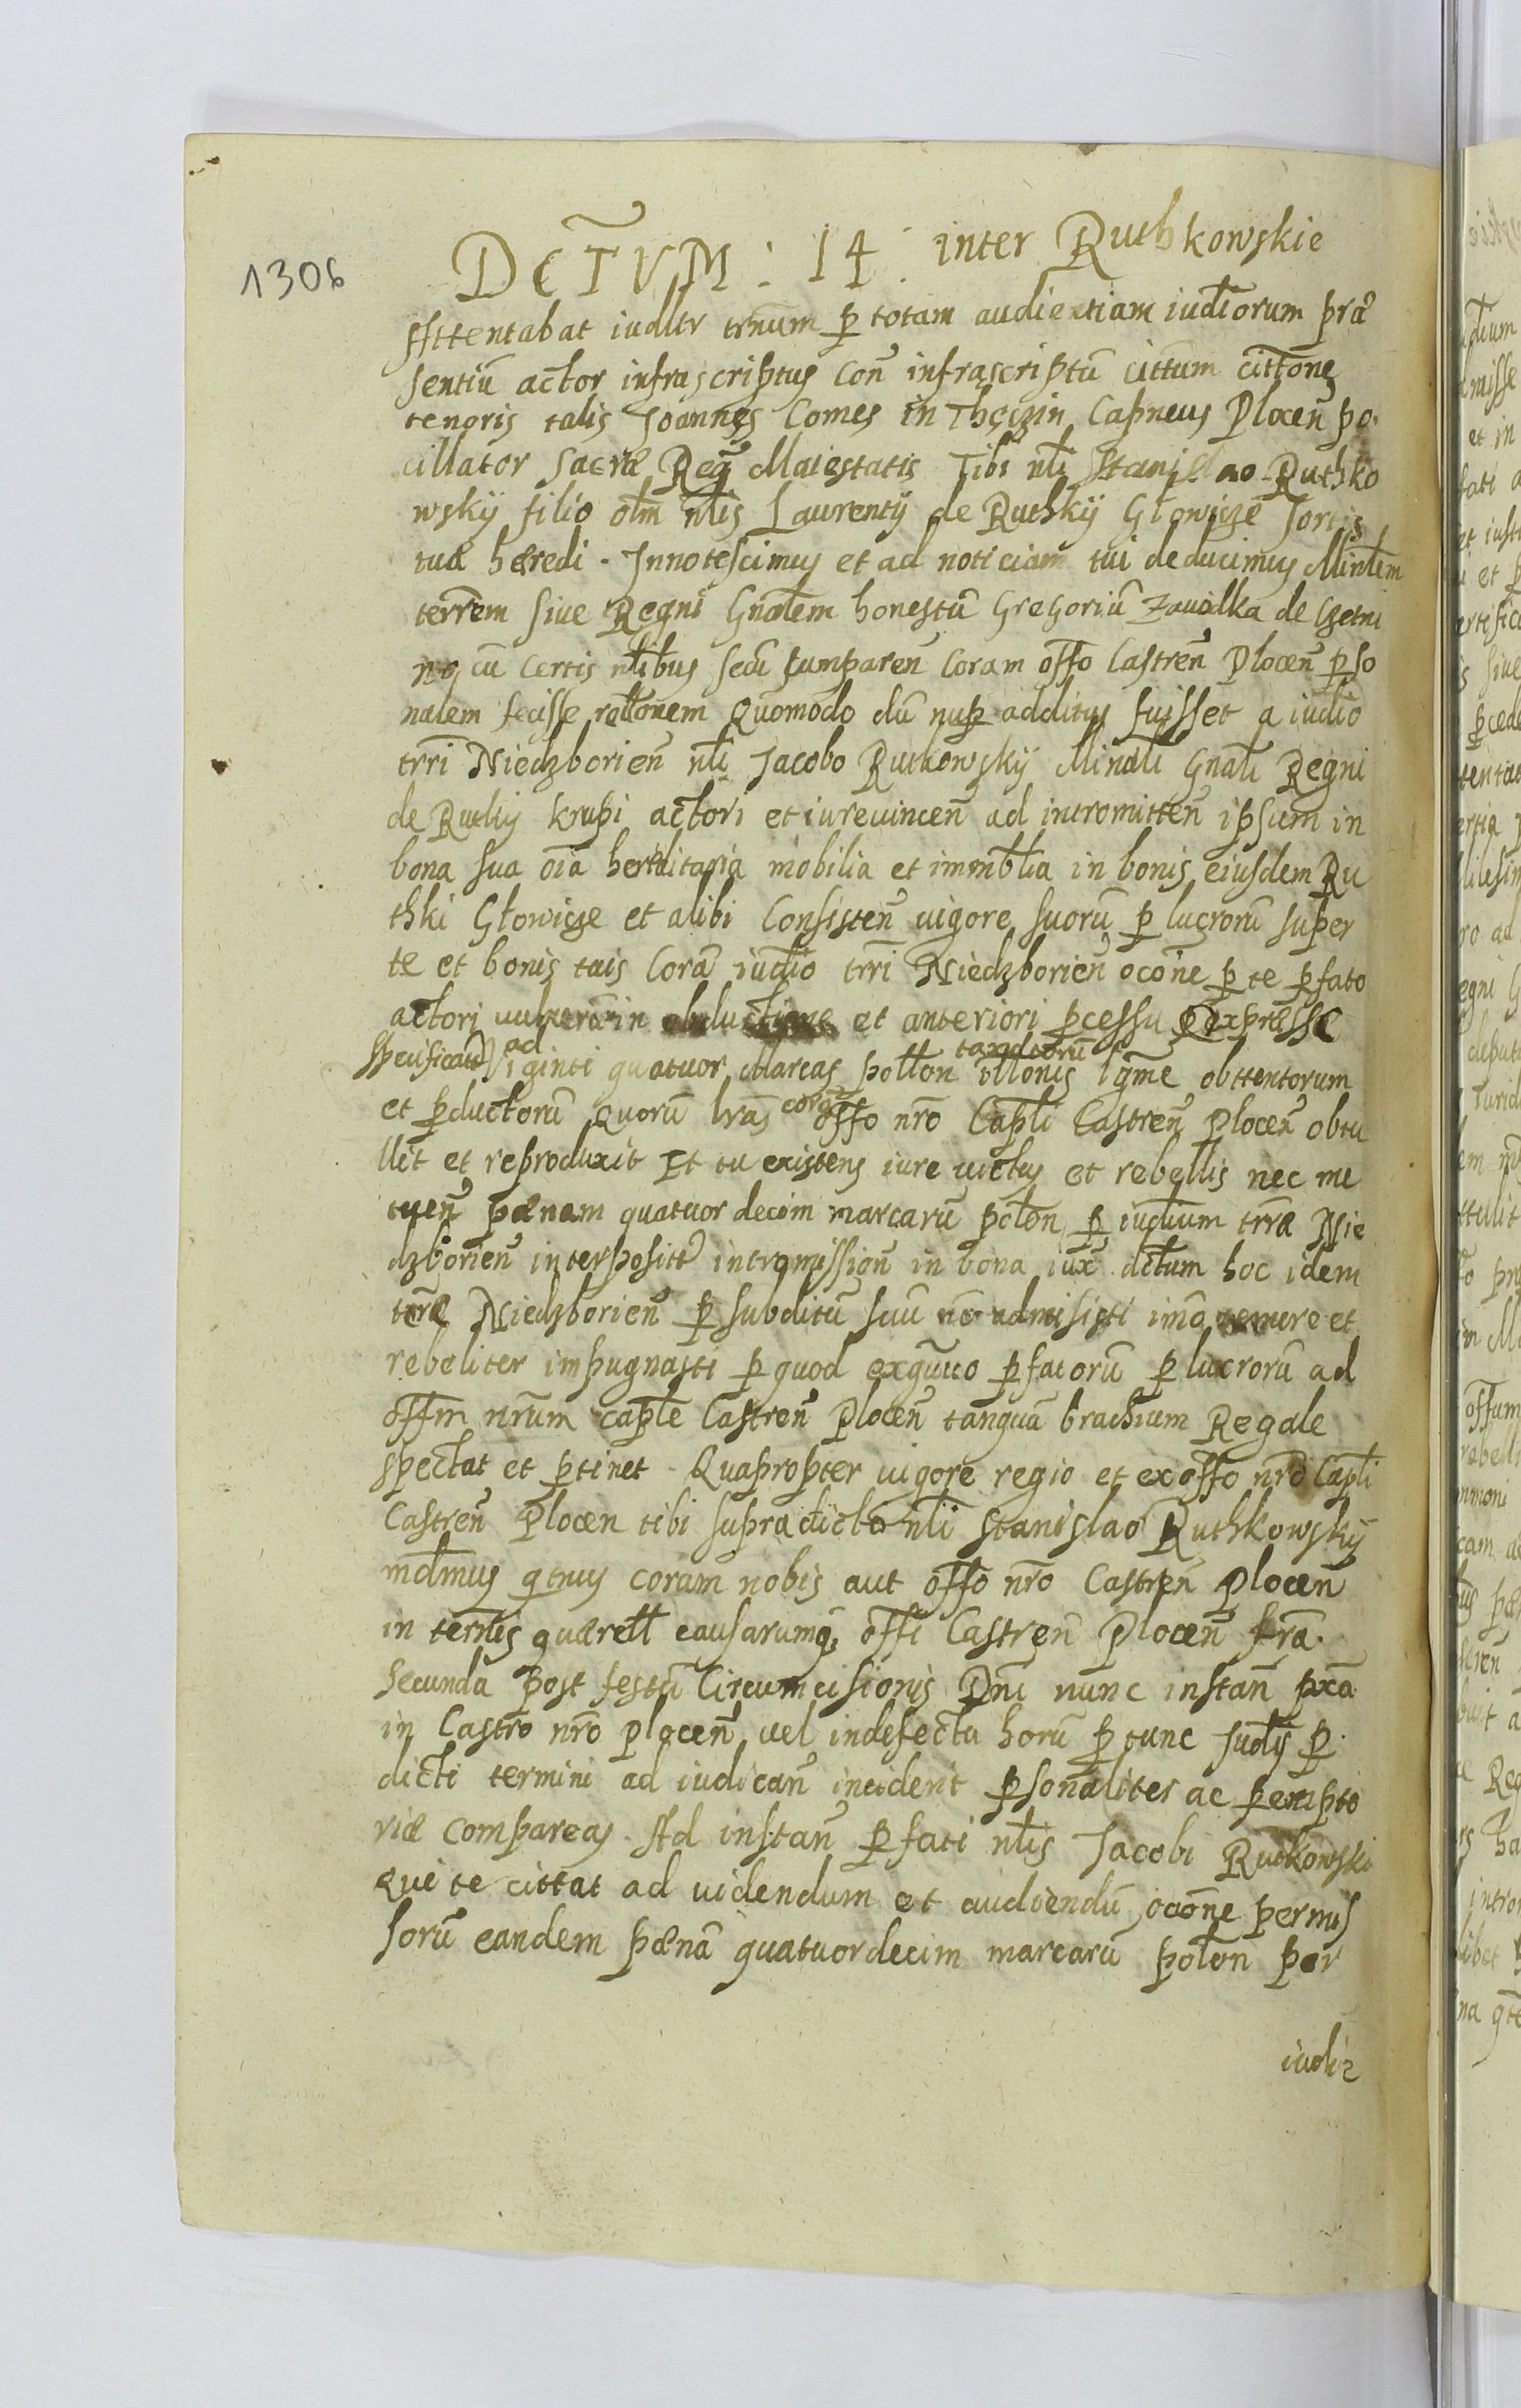 1306
DCTVM : 14 : inter Ruthkowskie
Attentabat iudltr trnum p totam audientiam iudiorum præ
sentiu actor infrascriptus Con infrascriptu cittum cittone
tenoris talis Joannes Comes in Thęczin Capneus Plocen po
cillator sacræ Reg Maiestatis Tibi nli Stanislao Ruthko
wskij filio olm nlis Laurentij de Ruthkij Głowicze sortis
tuæ hæredi. Innotescimus et ad noticiam tui deducimus Minlem
terrem siue Regni Gnalem honestu Gregoriu Zauidka de
no cu certis nlibus secu comparen Coram offo Castren Plocen pso
nalem fecisse relłonem Quomodo du nup additus fuisset a iudio
trri Niedzborien nli Jacobo Rutkowskij Minali Gnali Regni
de Rutkij krupi actori et iureuincen ad intromitten ipsum in
bona sua oia hereditaria mobilia et immblia in bonis eiusdem Ru
thki Głowicze et alibi Consisten uigore suoru p lucroru super
te et bonis tuis Cora iudio trri Niedzborien ocone p te pfato
actori uulneru in obductione et anteriori pcessu expresse
specificat ad Viginti quatuor Marcas połłon taxatoru illonis lgme obttentorum
et pductoru Quoru lras coram offo nro Capli Castren Plocen obtu
llit et reproduxit Et tu existens iure uictus et rebellis nec me
tuen pænam quatuor decim marcaru polon p iudium trræ Nie
dzborien interposit intromission in bona iux dctum hoc idem
trræ Niedzborien p subditu suu no admisisti imo temere et
rebeliter impugnasti p quod exguto pfatoru p lucroru ad
offm nrum caple Castren Plocen tanqua brachium Regale
spectat et ptinet. Quapropter uigore regio et ex offo nro Capli
Castren Plocen tibi supradicto nli Stanislao Ruthkowskij
mdmus qtnus coram nobis aut offo nro Castren Plocen
in ternis quærell causarumq offi Castren Plocen fra
Secunda post festu Circumcisionis Dni nunc instan pxa
in Castro nro Plocen uel indefectu horu p tunc p
dicti termini ad iudican incident psonaliter ac perempto
riæ compareas. Ad instan pfati nlis Jacobi Rutkowski
Qui te cittat ad uidendum et audiendu, ocone permis
soru eandem pæna quatuordecim marcaru polon per
iudi